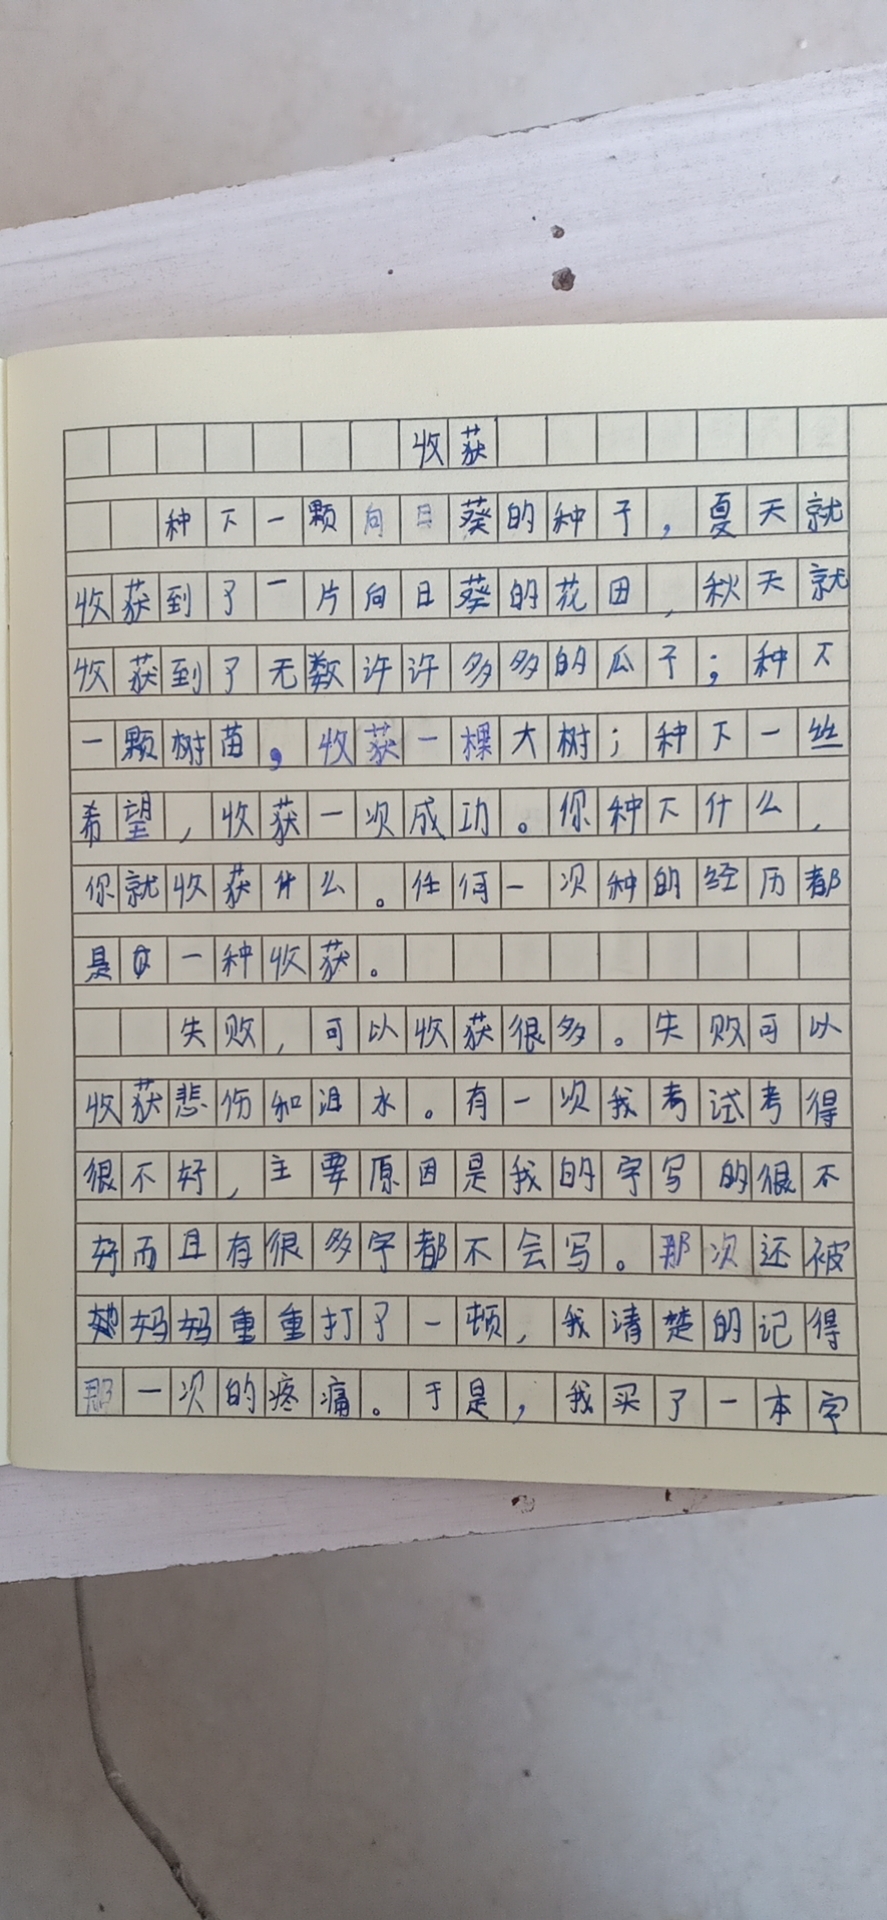 收获
种下一颗向日葵的种子，夏天就
收获到了一片向日葵的花田，秋天就
收获到了无数许许多多的瓜子；种下
一颗树苗，收获一棵大树；种下一丝
希望，收获一次成功。你种下什么，
你就收获什么。任何一次种的经历都
是一种收获。
失败，可以收获很多。失败可以
收获悲伤和泪水。有一次我考试考得
很不好，主要原因是我的字写的很不
好而且有很多字都不会写。那次还被
妈妈重重打了一顿，我清楚的记得
那一次的疼痛。于是，我买了一本字